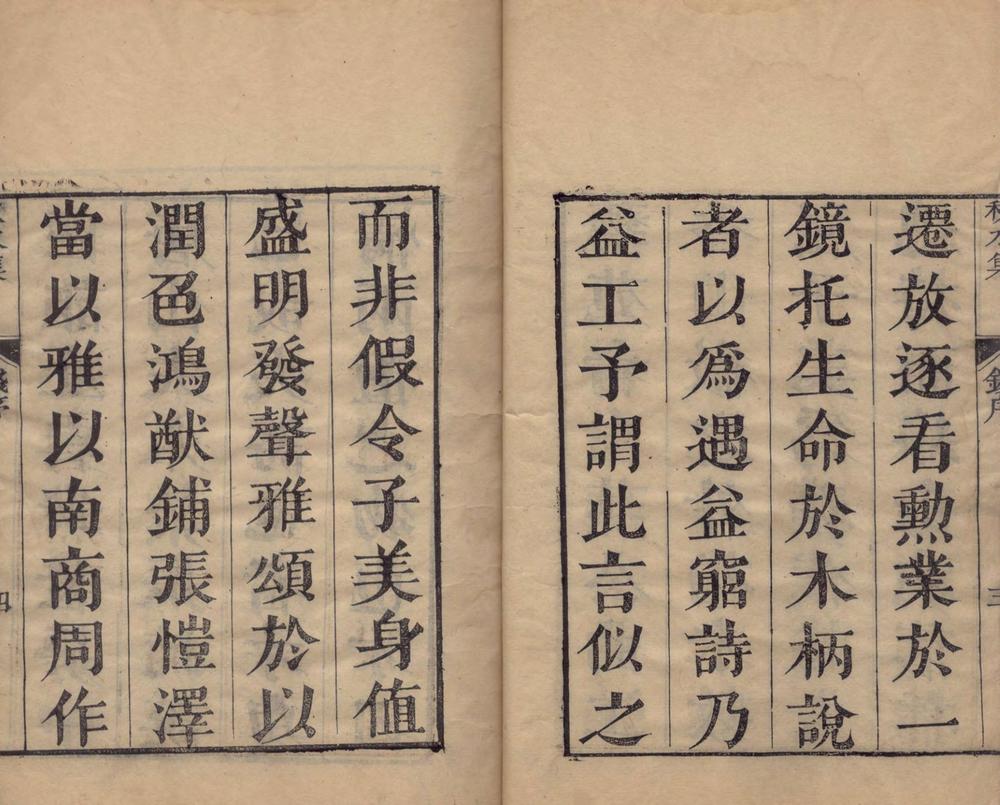 遷放逐看勲業於一
鏡托生命於木柄說
者以爲遇益窮詩乃
益工予謂此言似之
而非假令子美身值
盛明發聲雅頌於以
潤色鴻猷鋪張愷澤
當以雅以南商周作